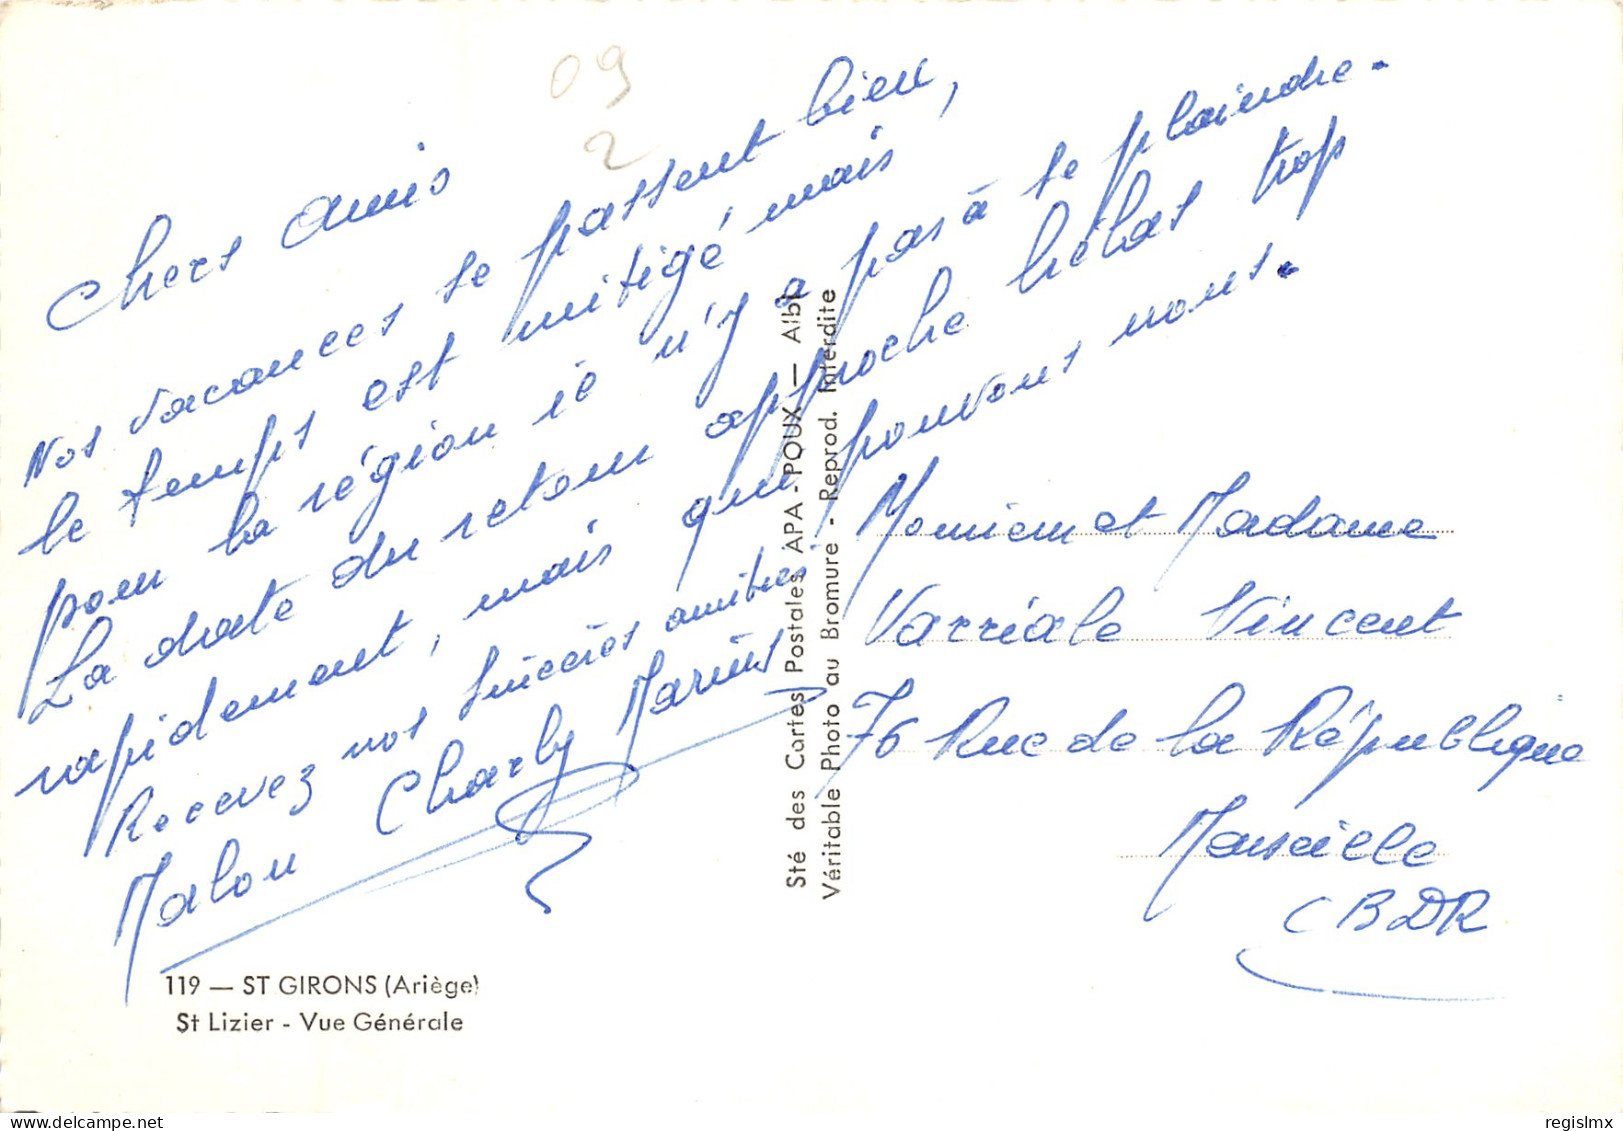 09
2
Chers amis
Nos vacances se passent bien,
le temps est mitigé mais
pour la région il n'y a pas à se plaindre.
La date du retour approche hélas trop
rapidement, mais que pouvons nous.
Recevez nos sincères amitiés
Malou Charly Marius
119 — ST GIRONS (Ariège)
St Lizier - Vue Générale
Sté des Cartes Postales APA - POUX — Albi
Véritable Photo au Bromure - Reprod. Interdite
Monsieur et Madame
Varriale Vincent
76 Rue de la République
Marseille
(BDR
regislmx